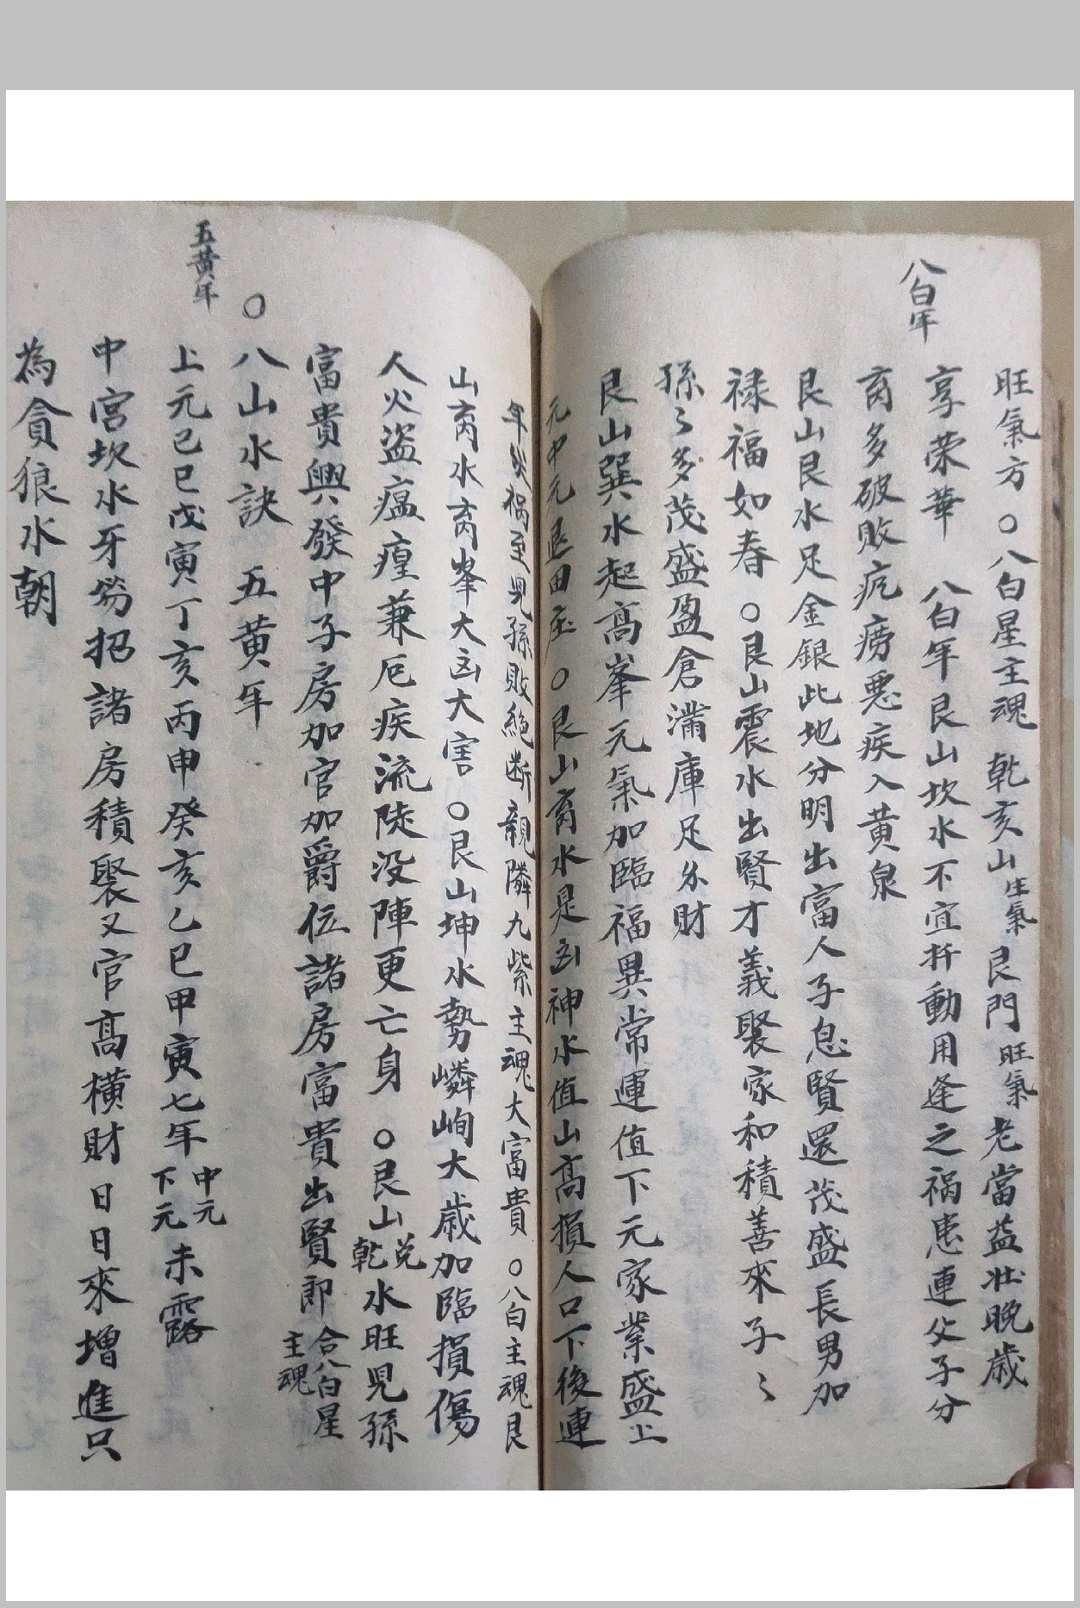 八白年
旺氣方○八白星主魂乾亥山生氣艮門旺氣老當益壯晚歲
享荣華 八白年艮山坎水不宜扦動用逢之禍患連父子分
离多破敗疙痨悪疾入黄泉
艮山艮水足金銀此地分明出富人子息賢還茂盛長男加
禄福如春○艮山震水出賢才義聚家和積善來子〻
孫〻多茂盛盈倉滿庫足糸財
艮山巽水起髙峯元氣加臨福異常運值下元家業盛上
元中元退田庄○艮山离水是凶神水值山高損人口下後連
年災禍至児孫敗絕断親隣九紫主魂大富貴○八白主魂艮
山离水离峯大凶大害○艮山坤水勢嶙峋大歲加臨損傷
人火盜瘟瘟兼厄疾流陡没陣更亡身○艮山兑乾水旺児孫
富貴興發中子房加官加爵位諸房富貴出賢郎合八白星主魂
五黄年
○八山水訣 五黄年
上元己巳戊寅丁亥丙申癸亥乙巳甲寅七年中元下元未露
中宮坎水牙勞招諸房積聚又官高横財日日來增進只
為貪狼水朝